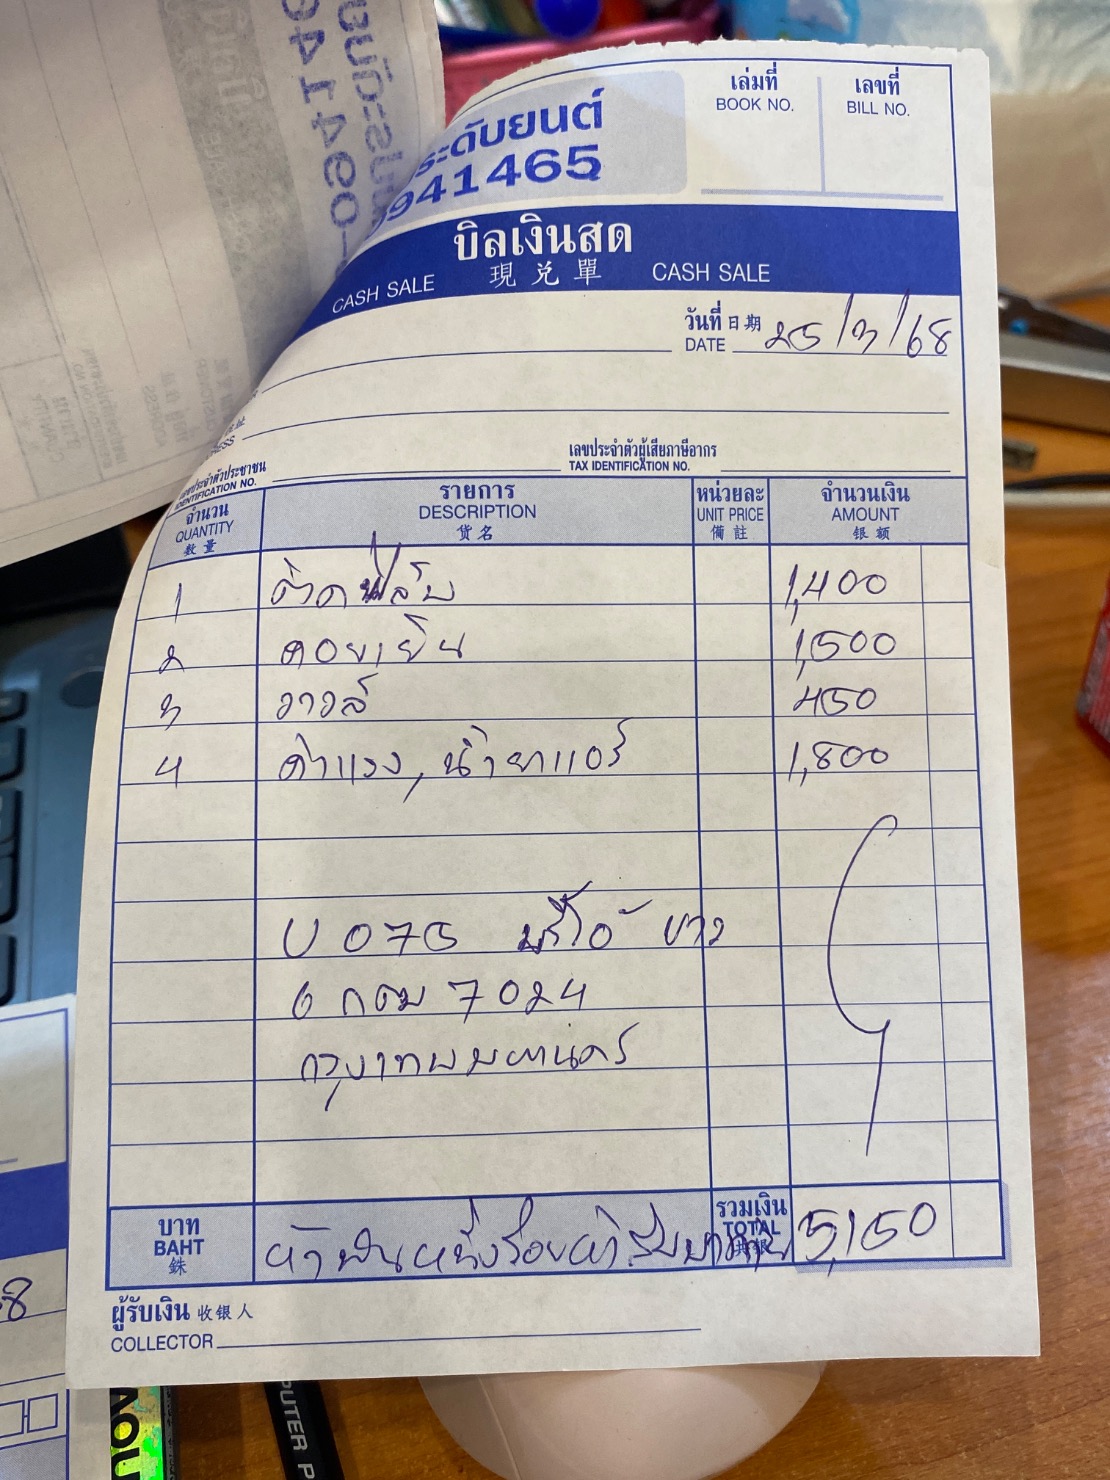 ระดับยนต์
941465
เล่มที่
BOOK NO.
เลขที่
BILL NO.
บิลเงินสด
CASH SALE 現兌單 CASH SALE
วันที่ 日期
DATE 25/3/68
เลขประจำตัวประชาชน
IDENTIFICATION NO.
เลขประจำตัวผู้เสียภาษีอากร
TAX IDENTIFICATION NO.
จำนวน QUANTITY 数量 รายการ DESCRIPTION 货名 หน่วยละ UNIT PRICE 備註 จำนวนเงิน AMOUNT 银额
1 1,400
2 คอยเย็น 1,500
3 วาวล์ 450
4 ค่าแรง, น้ำยาแอร์ 1,800
U 075 ขาว
6 กฒ 7024
กรุงเทพมหานคร
บาท BAHT 銖 ห้าพันหนึ่งร้อยห้าสิบบาท รวมเงิน TOTAL 5,150
ผู้รับเงิน 收银人
COLLECTOR